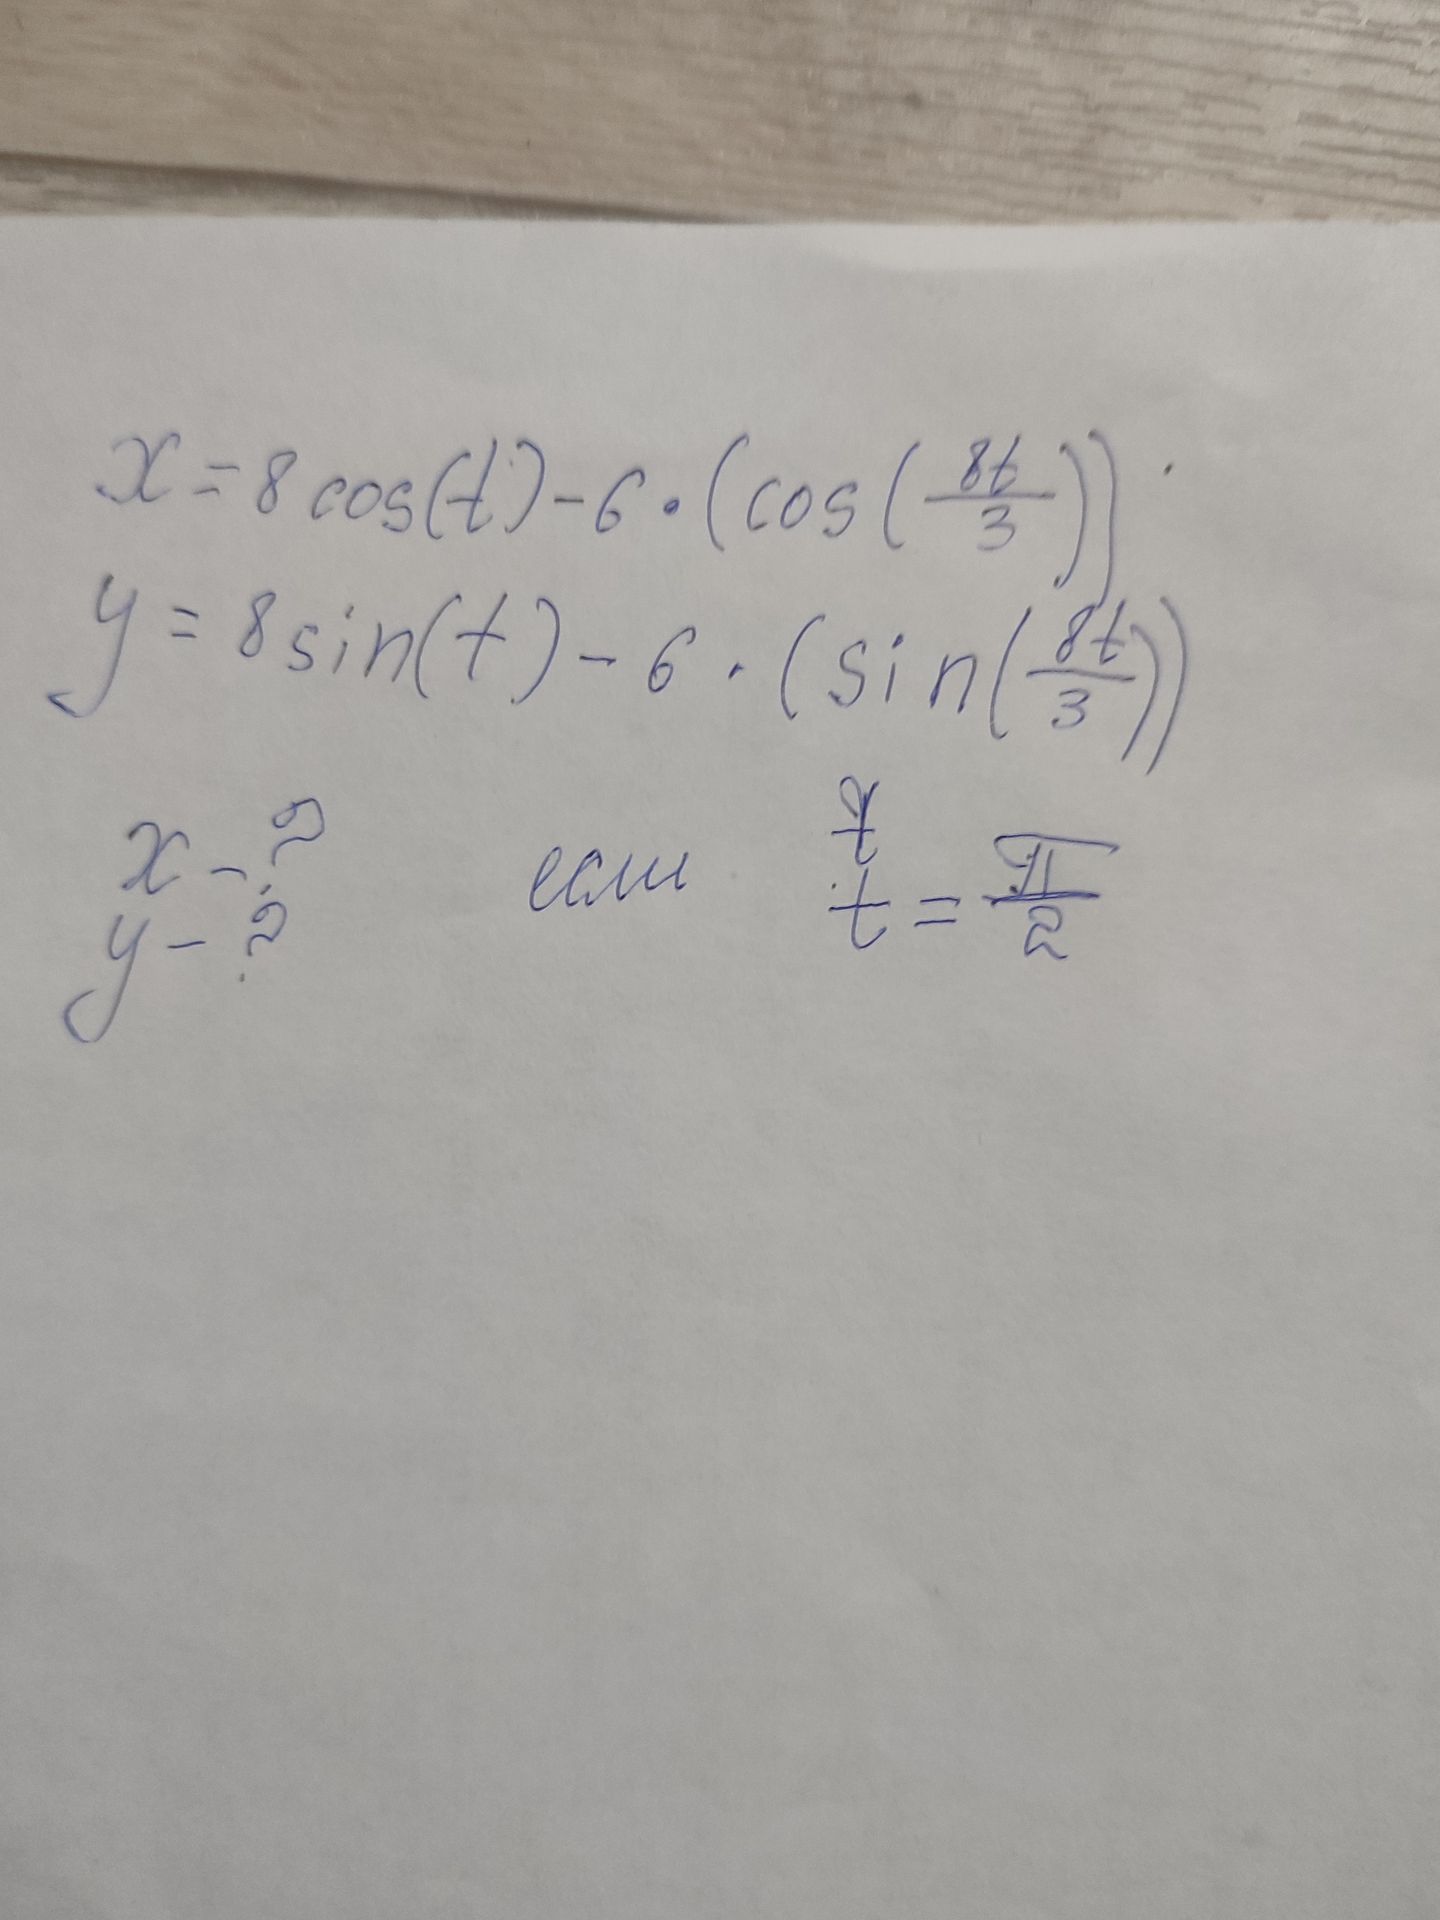 x = 8 cos(t) - 6 · (cos(8t/3))
y = 8 sin(t) - 6 · (sin(8t/3))
x - ? если t = π/2
y - ?